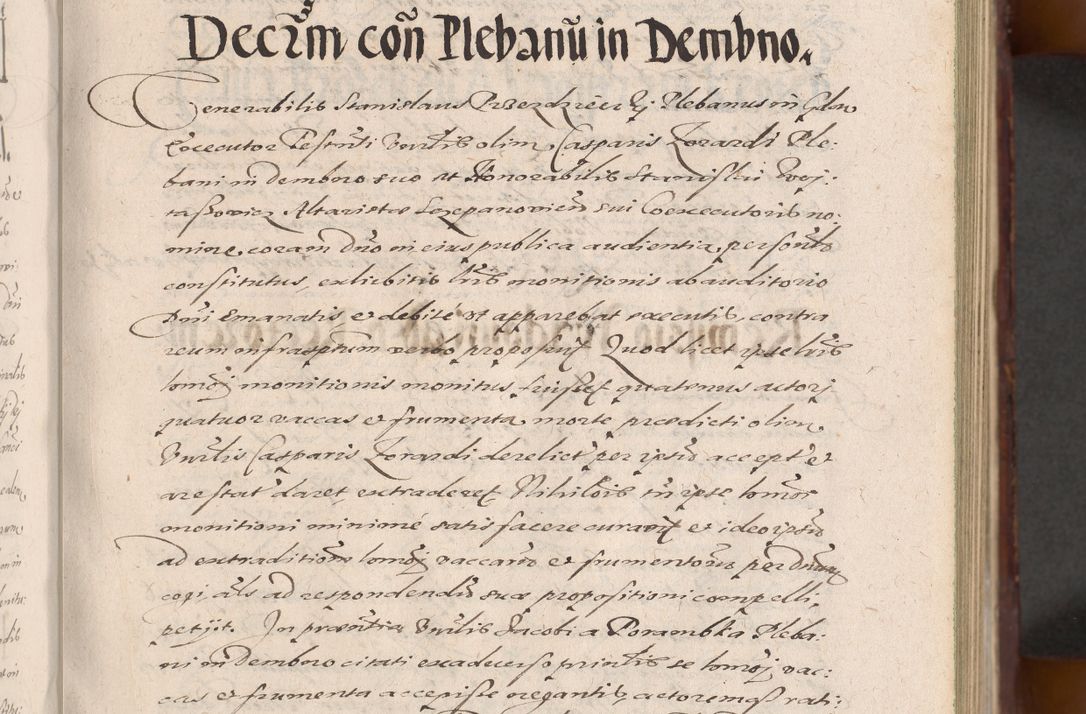 Decr̃m cõn Plebanũ in Dembno
Venerabilis Stanislaus Plebanus in
Executor Testñti Vnrłis olim Casparis Zerardi Ple:
bani in Dembno suo et Honorabilis Stanislai Woj:
tassowicz Altaristæ Sczepanowień sui Coexecutoris no:
mine, coram Dño in eius publica audientia, personłr
constitutus, exhibitis łris monitionis ab auditorio
Dñi emanatis et debite vt apparebat executis, contra
reum infrascptum verbo proposuit Quod licet ipse łris
homoi monitionis monitus fuisset quatenus actori
quatuor vaccas et frumenta morte prædicti olim
Vnrłis Casparis Zerardi derelict per ipsũ accept et
arestat daret extraderet Nihilois tñ ipse homoi
monitioni minimé satisfacere curavit et ideo ipsũ
ad extraditiõm homoi vaccarũ et frumentorũ per Dñum
cogi, ałs ad respondendũ suæ propositioni compelli,
petijt. In præsentia Vnrłis Jacobi a Porambka Pleba:
ni in Dembno citati ex adverso prñtis se homoi vac:
cas et frumenta accepisse negantis, actoremqȝ rati: